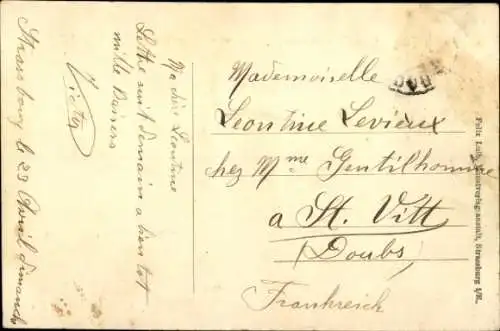 Strassbourg le 23 Avril dimanche
Ma chère Léontine
Lettre suit demain a bien tot
mille Baisers
Victor
Mademoiselle
Leontine Levieux
chez Mme Gentilhomme
a St. Vitt
(Doubs)
Frankreich
Felix Luib, Kunstverlagsanstalt, Strassburg i/E.